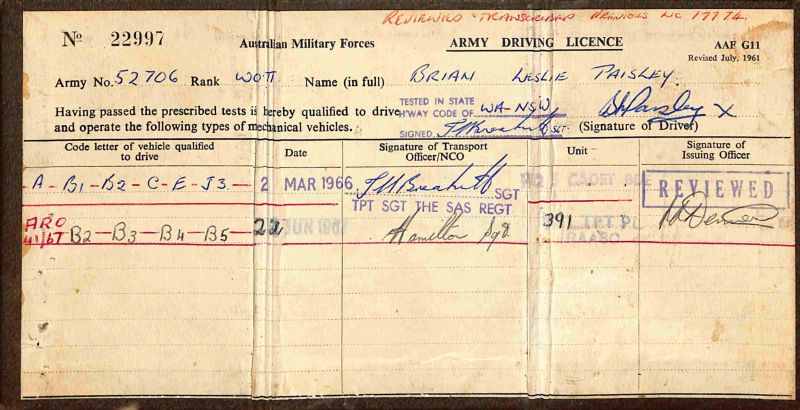 REVIEWED - TRANSCRIBED PREVIOUS LIC 17774.
No 22997 Australian Military Forces ARMY DRIVING LICENCE AAF G11
Revised July, 1961
Army No. 52706 Rank WOII Name (in full) BRIAN LESLIE PAISLEY.
Having passed the prescribed tests is hereby qualified to drive
and operate the following types of mechanical vehicles.
TESTED IN STATE
H'WAY CODE OF WA-NSW
SIGNED SGT
(Signature of Driver)
Code letter of vehicle qualified to drive Date Signature of Transport Officer/NCO Unit Signature of Issuing Officer
A - B1 - B2 - C - E - J3 - 2 MAR 1966 SGT CADET BDE REVIEWED
TPT SGT THE SAS REGT
ARO 41/67 B2 - B3 - B4 - B5 - 22 JUN 1967 Hamilton Sgt 391 TPT PL
RAASC